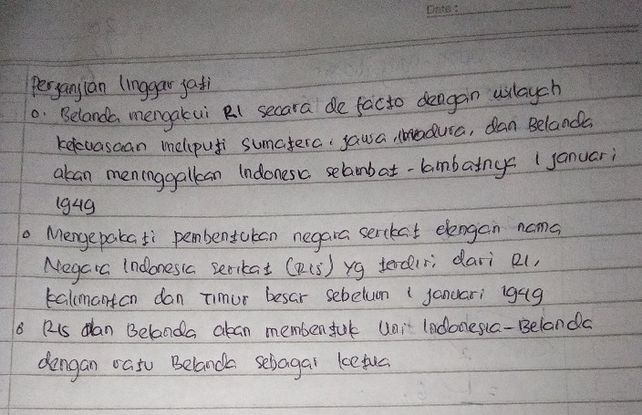 Date:
Perjanjian linggar jati
o. Belanda mengakui RI secara de facto dengan wilayah
kekuasaan meliputi sumatera, jawa, madura, dan Belanda
akan meninggalkan Indonesia selambat-lambatnya 1 januari
1949
o Mengepakati pembentukan negara serikat dengan nama
Negara Indonesia serikat (RIS) yg terdiri dari RI,
kalimantan dan Timur besar sebelum 1 januari 1949
o RIS dan Belanda akan membentuk Uni Indonesia-Belanda
dengan ratu Belanda sebagai ketua